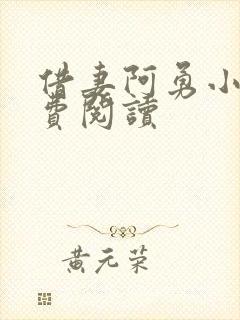 借妻阿勇小
費閱讀
黃元荣